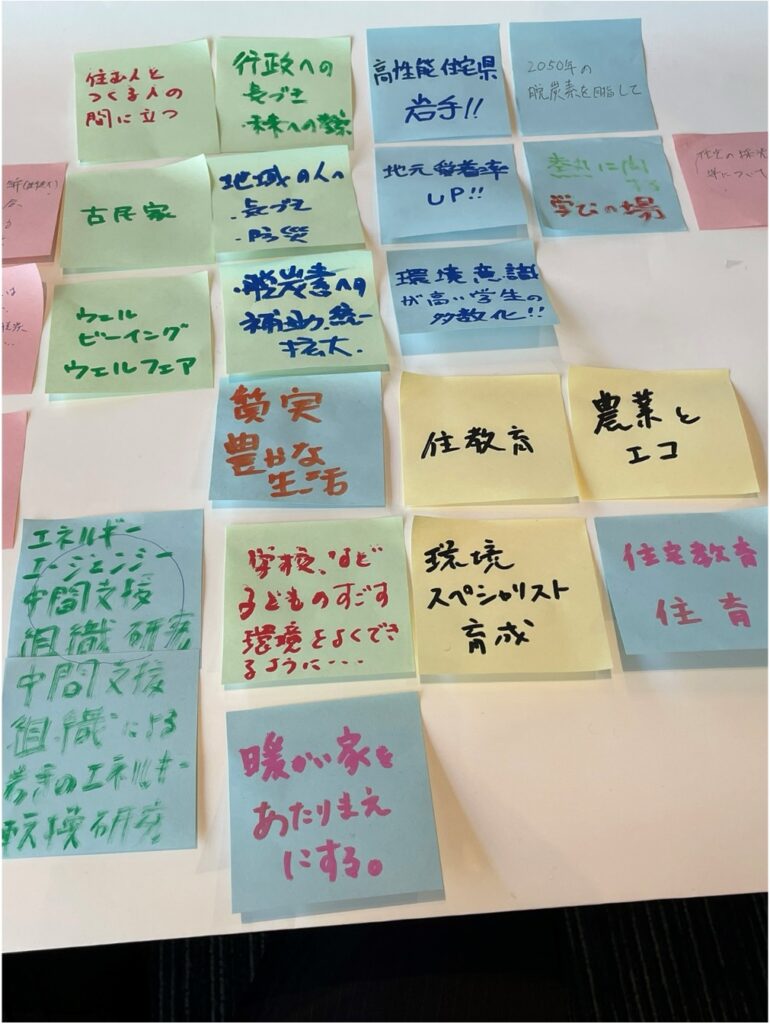 住む人と
つくる人の
間に立つ
行政への
長づき
未来への
高性能住宅県
岩手!!
2050年の
脱炭素を目指して
古民家
地域の人へ
・長づき
・防災
地元
UP!!
熱に関
する
学びの場
住宅の
ウェル
ビーイング
ウェルフェア
・脱炭素への
補助、統一
拡大.
環境意識
が高い学生の
多数化!!
質実
豊かな
生活
住教育
農業と
エコ
エネルギー
エージェンシー
中間支援
組織研究
学校、など
子どものすごす
環境をよくでき
るように・・・
環境
スペシャリスト
育成
住宅教育
住育
中間支援
組織による
エネルギー
転換研究
暖かい家を
あたりまえ
にする。